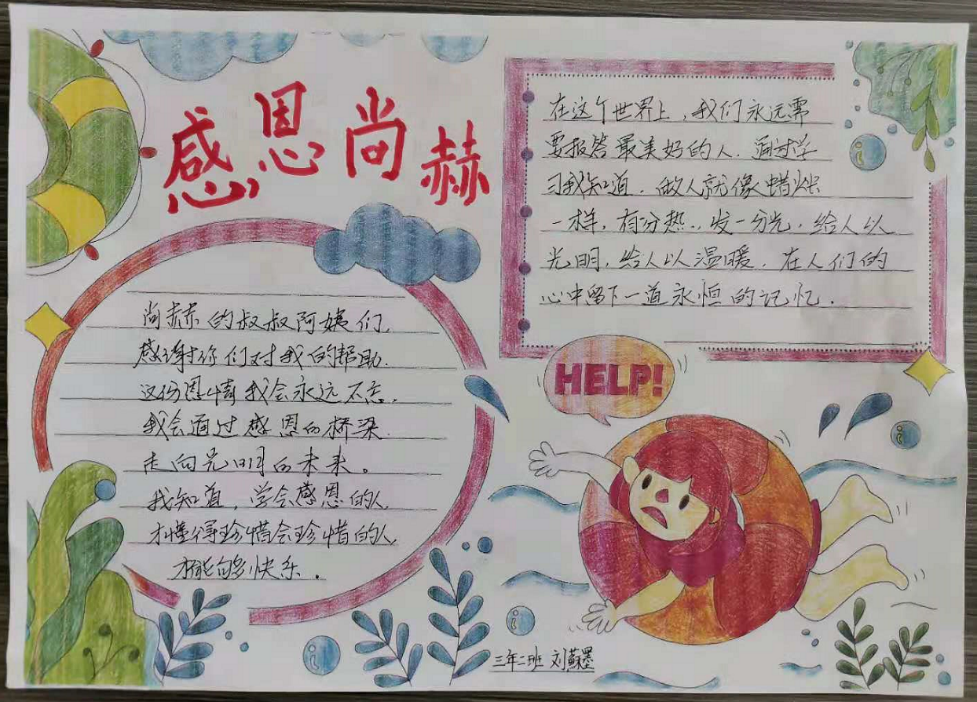 感恩尚赫
尚赫的叔叔阿姨们,
感谢你们对我的帮助.
这份恩情我会永远不忘.
我会通过感恩的桥梁.
走向光明的未来。
我知道,学会感恩的人
才懂得珍惜会珍惜的人
才能够快乐.
在这个世界上,我们永远需
要报答最美好的人.通过学
习我知道.做人就像蜡烛
一样,有分热..发一分光.给人以
光明,给人以温暖.在人们的
心中留下一道永恒的记忆.
HELP!
三年二班 刘蘇墨